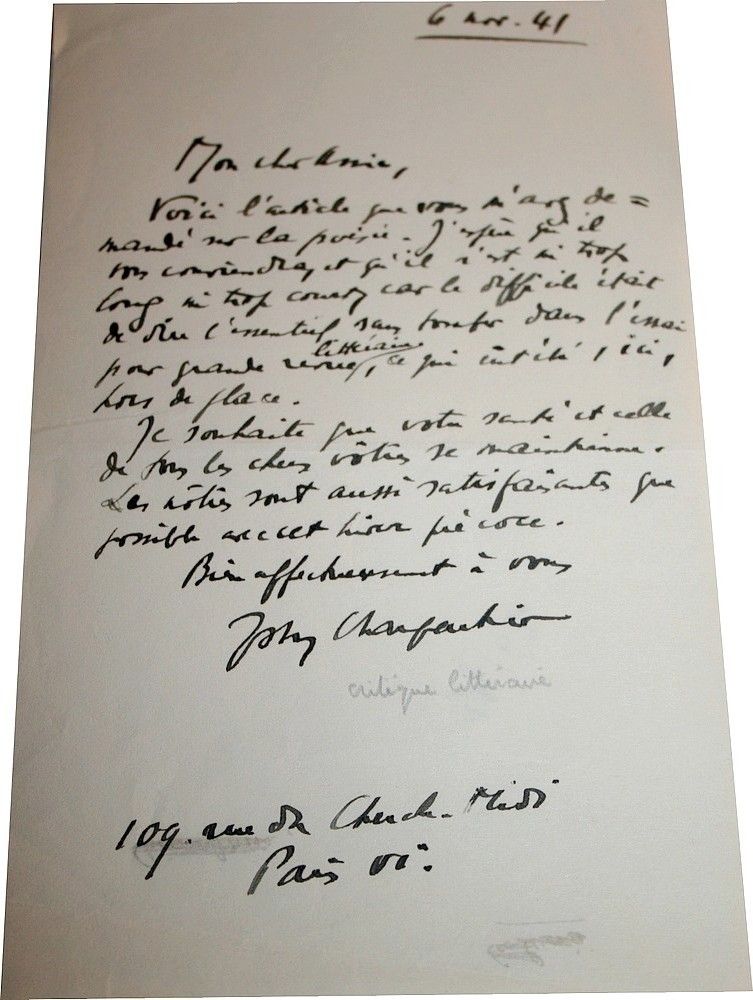 6 nov. 41
Mon cher Amie,
Voici l'article que vous m'avez de=
mandé sur la poésie. J'espère qu'il
vous conviendra, et qu'il n'est ni trop
long ni trop court, car le difficile était
de dire l'essentiel sans tomber dans l'essai
pour grande revue littéraire, ce qui eût été, ici,
hors de place.
Je souhaite que votre santé et celle
de tous les chers vôtres se maintienne.
Les nôtres sont aussi satisfaisantes que
possible avec cet hiver précoce.
Bien affectueusement à vous
John Charpentier
critique littéraire
109. rue du Cherche-Midi
Paris VIe.